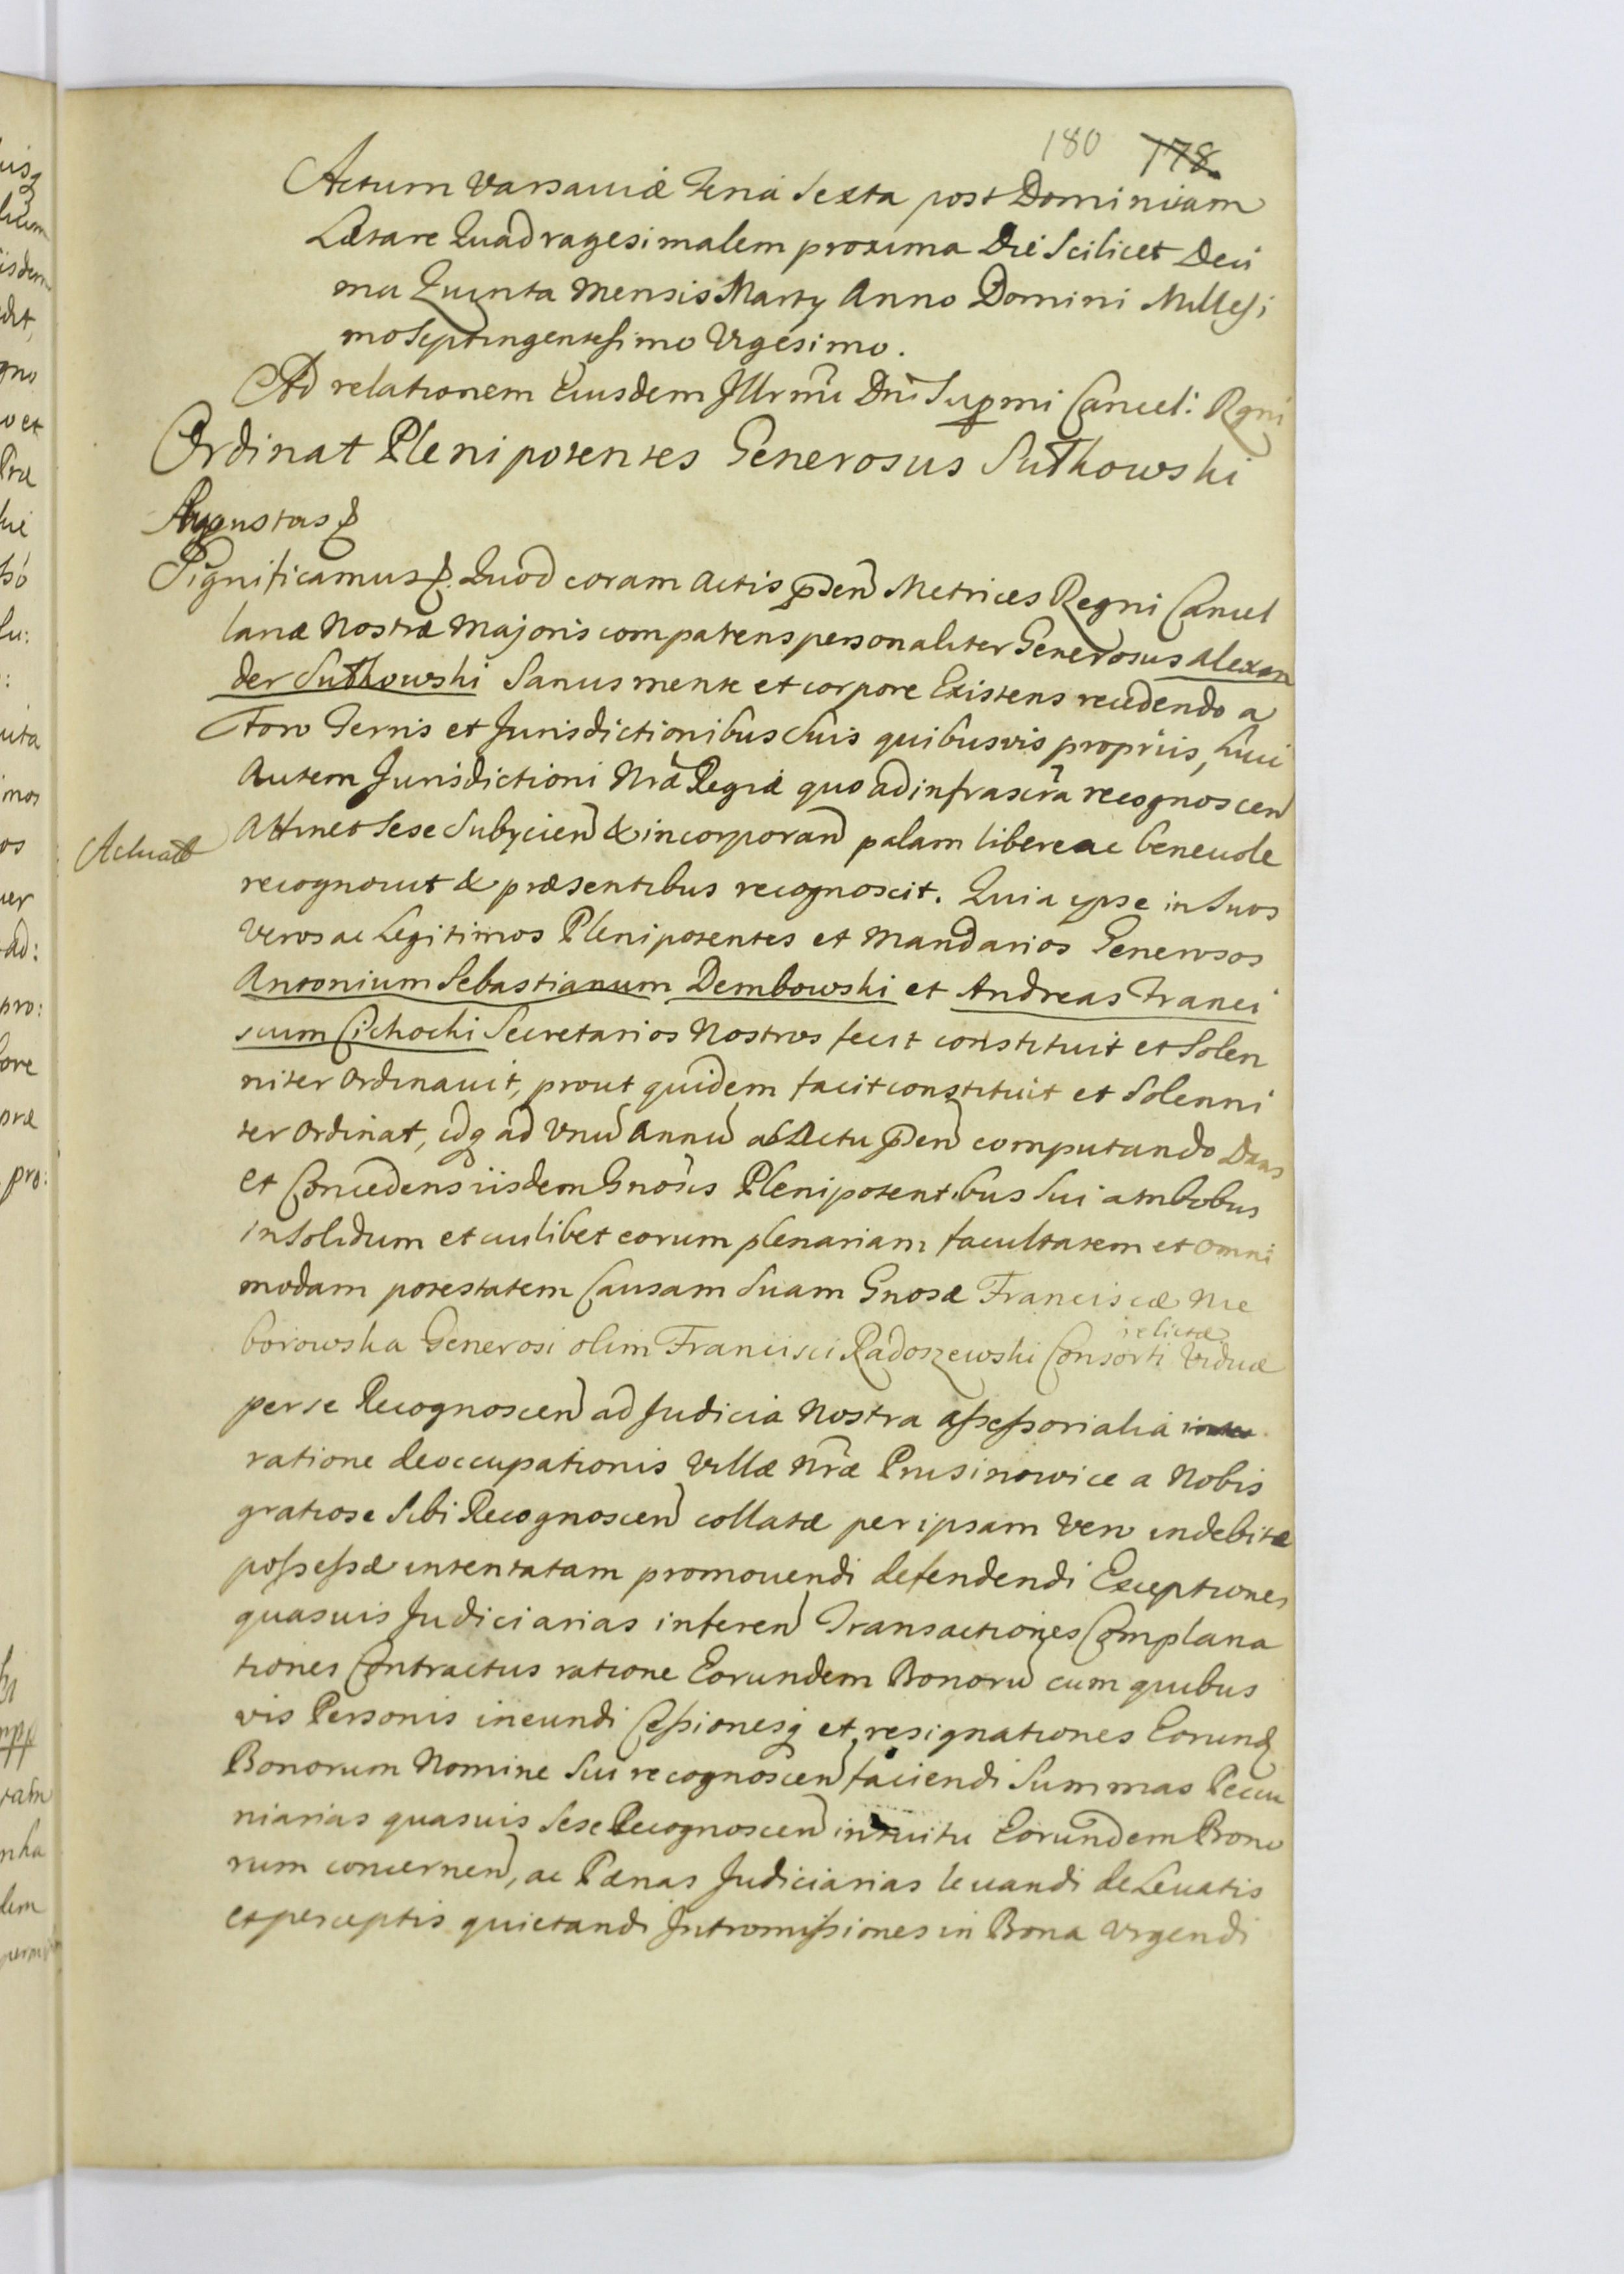 180 178
Actum Varsauiæ Feria Sexta post Dominicam
Lætare Quadragesimalem proxima Die Scilicet Deci
ma Quinta Mensis Marty Anno Domini Millesi
mo Septingentesimo Vigesimo.
Ad relationem Eiusdem Illrmi Dni Supmi Cancel: Rgni
Ordinat Plenipotentes Generosus Sutkowski
Augustus &
Significamus &. Quod coram Actis pñsen Metrices Regni Cancel
lariæ Nostræ Majoris comparens personaliter Generosus Alexan
der Sutkowski Sanus mente et corpore Existens recedendo a
Foro Terris et Jurisdictionibus Suis quibusvis propriis, huic
Autem Jurisdictioni Nræ Regiæ quo ad infrascra recognoscen
Actuat
Attinet Sese Subijcien & incorporan palam libere ac beneuole
recognouit & præsentibus recognoscit. Quia ipse in Suos
Veros ac Legitimos Plenipotentes et Mandarios Generosos
Antonium Sebastianum Dembowski et Andreas Franci
scum Cichocki Secretarios Nostros fecit constituit et Solen
niter Ordinauit, prout quidem facit constituit et Solenni
ter Ordinat, idq ad Unu Annu ab Actu pñsen computando Dans
et Concedens iisdem Gnosis Plenipotentibus Sui ambobus
in Solidum et cuilibet eorum plenariam facultatem et omni
modam potestatem Causam Suam Gnosæ Franciscæ Nie
borowska Generosi olim Francisci Radoszewski Consorti relictæ Viduæ
per se Recognoscen ad Judicia Nostra Assessorialia
ratione deoccupationis Villæ Nræ Prusinowice a Nobis
gratiose Sibi Recognoscen collatæ per ipsam Vero indebitæ
possessæ intentatam promouendi defendendi Exceptiones
quasuis Judiciarias inferen Transactiones Complana
tiones Contractus ratione Eorundem Bonoru cum quibus
vis Personis ineundi Cessionesq et resignationes Eorund
Bonorum Nomine Sui recognoscen faciendi Summas Pecu
niarias quasuis Sese Recognoscen intuitu Eorundem Bono
rum concernen, ac Pænas Judiciarias leuandi de Leuatis
et perceptis quietandi Intromissiones in Bona Urgendi